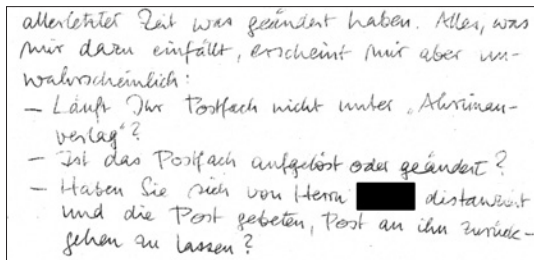 allerletzter Zeit was geändert haben. Alles, was
mir dazu einfällt, erscheint mir aber un-
wahrscheinlich:
- Läuft Ihr Postfach nicht unter „Ahriman-
verlag"?
- Ist das Postfach aufgelöst oder geändert?
- Haben Sie sich von Herrn distanziert
und die Post gebeten, Post an ihn zurück-
gehen zu lassen?